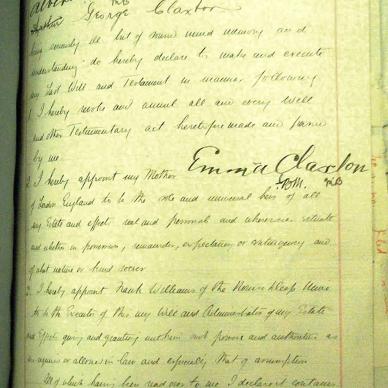 George Claxton
being weakly but of sound mind memory and
understanding do hereby declare to make and execute
my Last Will and Testament in manner following
1 I hereby revoke and annul all and every Will
and other Testamentary act heretofore made and passed
by me
2 I hereby appoint my Mother Emma Claxton
of London England to be the sole and universal heir of all
my Estate and effects real and personal and wherever situate
and whether in possession, remainder, expectancy or contingency and
of what nature or kind soever
3. I hereby appoint Frank Williams of the
to be the Executor of this my Will and Administrator of my Estate
and Effects giving and granting unto him such powers and authorities as
are required or allowed in Law and especially that of assumption
All of which having been read over to me I declare it contains